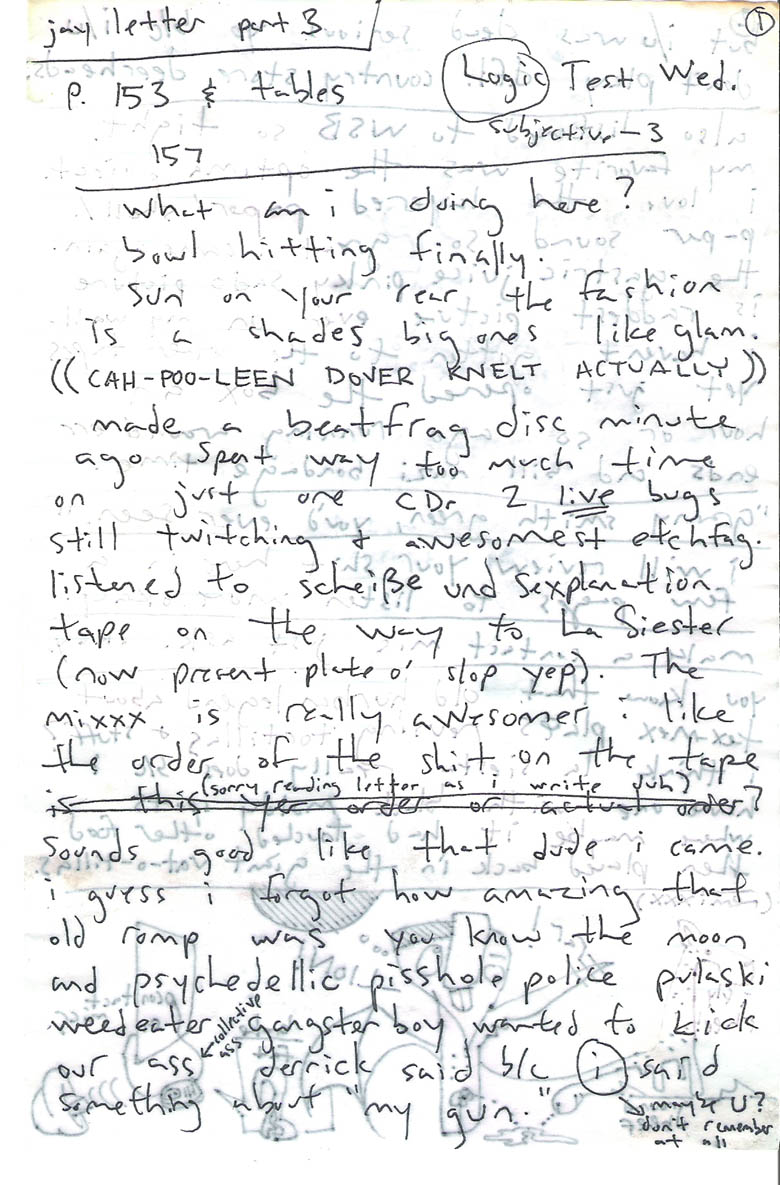 jay letter part 3
①
p. 153 & tables
Logic Test Wed.
157
subjective - 3
What am i doing here?
bowl hitting finally.
Sun on your rear the fashion
is a shades big ones like glam.
((CAH-POO-LEEN DOVER KNELT ACTUALLY))
made a beatfrag disc minute
ago spent way too much time
on just one CDr 2 live bugs
still twitching & awesomest etchfag.
listened to scheiße und sexplanation
tape on the way to La Siester
(now present plate o' slop yep). The
mixxx is really awesomer i like
the order of the shit on the tape
is this yer order or actual order?
(sorry reading letter as i write yuh)
sounds good like that dude i came.
i guess i forgot how amazing that
old romp was you know the moon
and psychedellic pisshole police pulaski
weedeater gangster boy wanted to kick
our ass derrick said b/c i said
collective ass
something about "my gun."
maybe U?
don't remember
at all